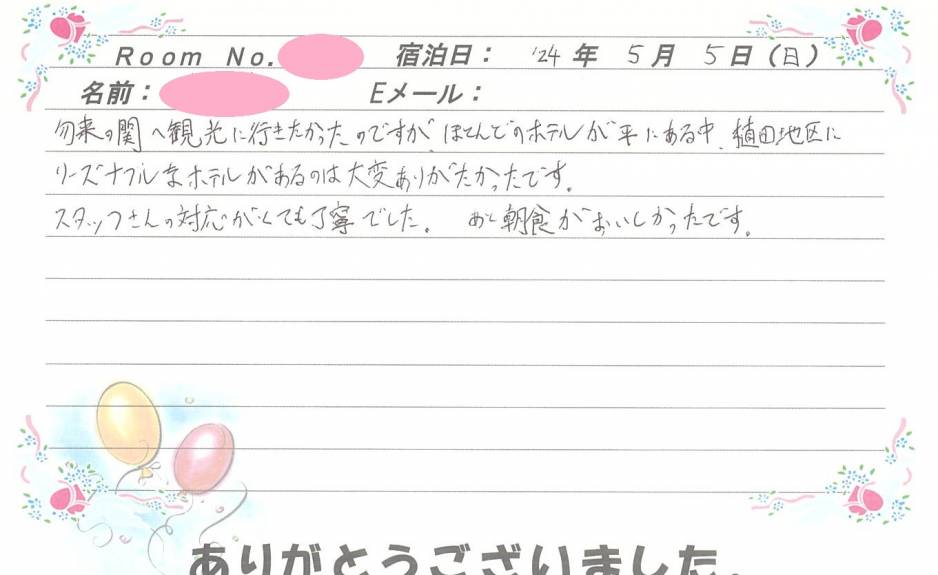 Room No. 宿泊日： '24 年 5月 5日（日）
名前： Eメール：
勿来の関へ観光に行きたかったのですが、ほとんどのホテルが平にある中、植田地区に
リーズナブルなホテルがあるのは大変ありがたかったです。
スタッフさんの対応がとても丁寧でした。 あと朝食がおいしかったです。
ありがとうございました。